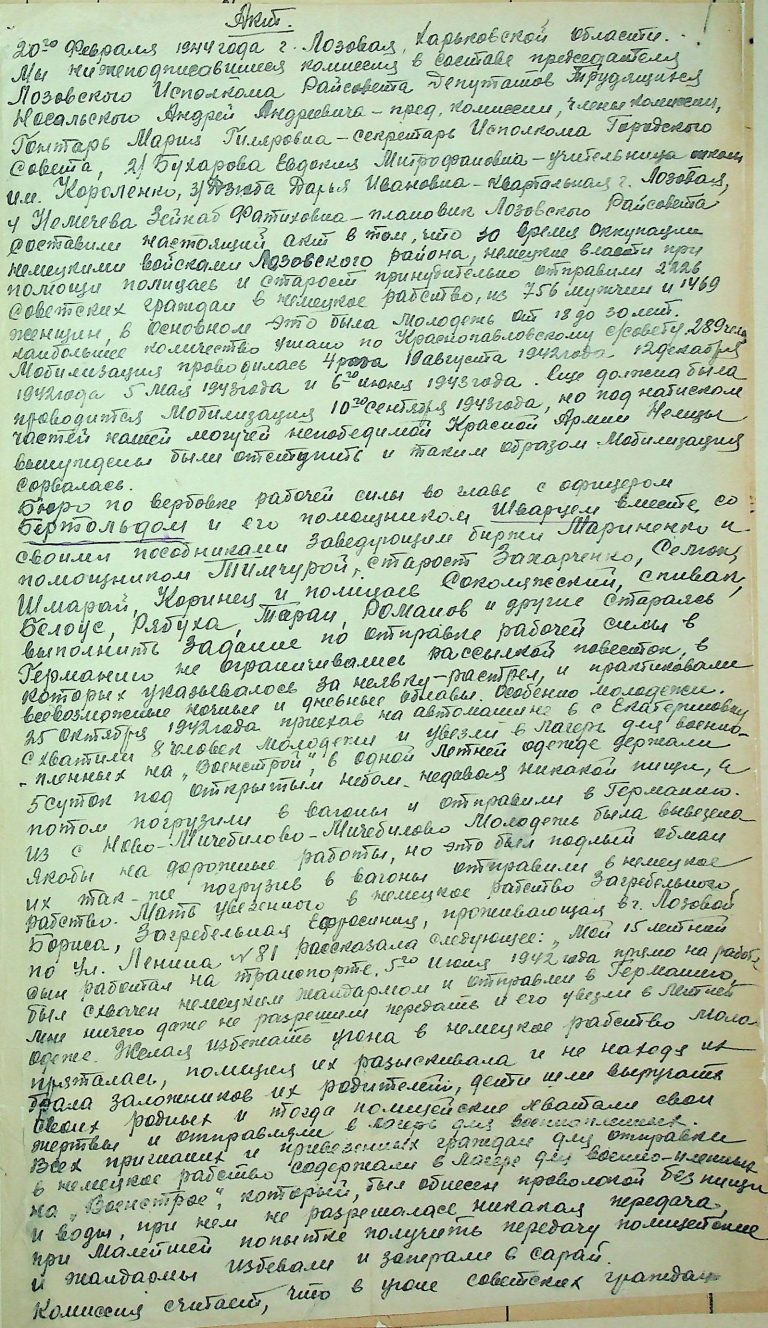 Акт.
20го Февраля 1944 года г. Лозовая, Харьковской области.
Мы нижеподписавшиеся комиссия в составе председателя
Лозовского Исполкома Райсовета Депутатов Трудящихся
Носальского Андрей Андреевича – пред. комиссии, члены комиссии,
Гонтарь Мария Гиляровна – секретарь Исполкома Городского
Совета, 2/ Бухарова Евдокия Митрофановна – учительница школы
им. Короленко, 3/ Дзюба Дарья Ивановна – квартальная г. Лозовая,
4 Немечева Зейнаб Фатиховна – плановик Лозовского Райсовета
составили настоящий акт в том, что за время оккупации
немецкими войсками Лозовского района, немецкие власти при
помощи полицаев и старост принудительно отправили 2226
советских граждан в немецкое рабство, из 756 мужчин и 1469
женщин, в основном это была молодежь от 18 до 30 лет.
наибольшее количество угнано по Краснопавловскому с/совету 289 чел
Мобилизация проводилась 4 раза 19 августа 1942 года 12 декабря
1942 года 5 мая 1943 года и 6го июня 1943 года. Еще должна была
проводится мобилизация 10го сентября 1943 года, но под натиском
частей нашей могучей непобедимой Красной Армии Немцы
вынуждены были отступить и таким образом мобилизация
сорвалась.
Бюро по вербовке рабочей силы во главе с офицером
Бертольдом и его помощником Шварцем вместе со
своими пособниками заведующим биржи Мариненко и
помощником Тимчурой, старост Захарченко,
Шмарай, Коринец и полицаев Соколяжский, спивак,
Белоус, Рябуха, Таран, Романов и другие стараясь
выполнить задание по отправке рабочей силы в
Германию не ограничивались рассылкой повесток, в
которых указывалось за неявку – растрел, и практиковали
всевозможные ночные и дневные облавы. Особенно молодежи.
25 октября 1942 года приехав на автомашине в с Екатериновку
схватили 8 человек молодежи и увезли в лагерь для военно-
-пленных на „Военстрой“, в одной летней одежде держали
5 суток под открытым небом. недавая никакой пищи, а
потом погрузили в вагоны и отправили в Германию.
Из с Ново-Мичебилово-Мичебилово молодежь была вывезена
якобы на дорожные работы, но это был подлый обман
их так-же погрузив в вагоны отправили в немецкое
рабство. Мать увезенного в немецкое рабство Загребельного
Бориса, Загребельная Ефросиния, проживающая в г. Лозовой
по ул. Ленина N 81 рассказала следующее: „Мой 15 летний
сын работал на транспорте, 5го июня 1942 года прямо на работе
был схвачен немецким жандармом и отправлен в Германию,
мне ничего даже не разрешили передать и его увезли в летней
одеже. Желая избежать угона в немецкое рабство моло-
пряталась, полиция их разыскивала и не находя их
брала заложников их родителей, дети шли выручать
своих родных и тогда полицейские хватали свои
жертвы и отправляли в лагерь для военнопленных.
Всех пригнаных и привезенных граждан для отправки
в немецкое рабство содержали в лагере для военно-пленных
на „Военстрое“, который, был обнесен проволокой без пищи
и воды, при чем не разрешалась никакая передача,
при малейшей попытке получить передачу полицейские
и жандармы избевали и запирали в сарай.
Комиссия считает, что в угоне советских граждан